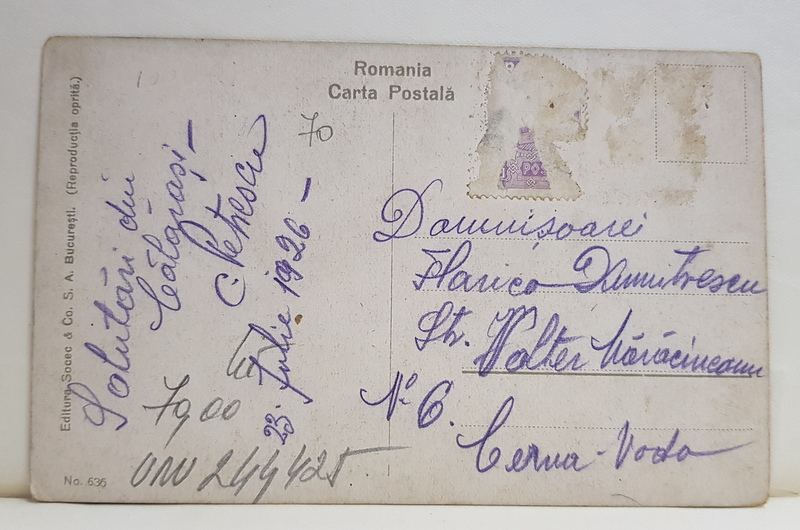 Romania
Carta Postală
Editura Socec & Co. S. A. Bucureşti. (Reproducţia oprită.)
No. 636
Salutări din
Călăraşi –
C. Petrescu
23. Iulie 1926 –
70
7900
UNU 244425
Domnişoarei
Florica Dumitrescu
Str. Walter Mărăcineanu
No 6.
Cerna-Voda